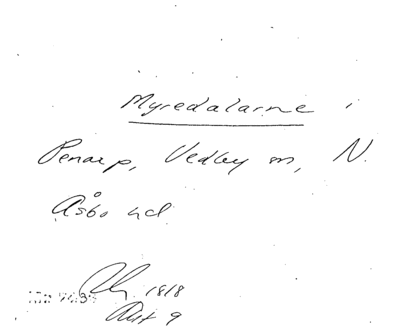 Myredalarne i
Penarp, Vedby sn, N.
Åsbo hd
1818
Akt 9